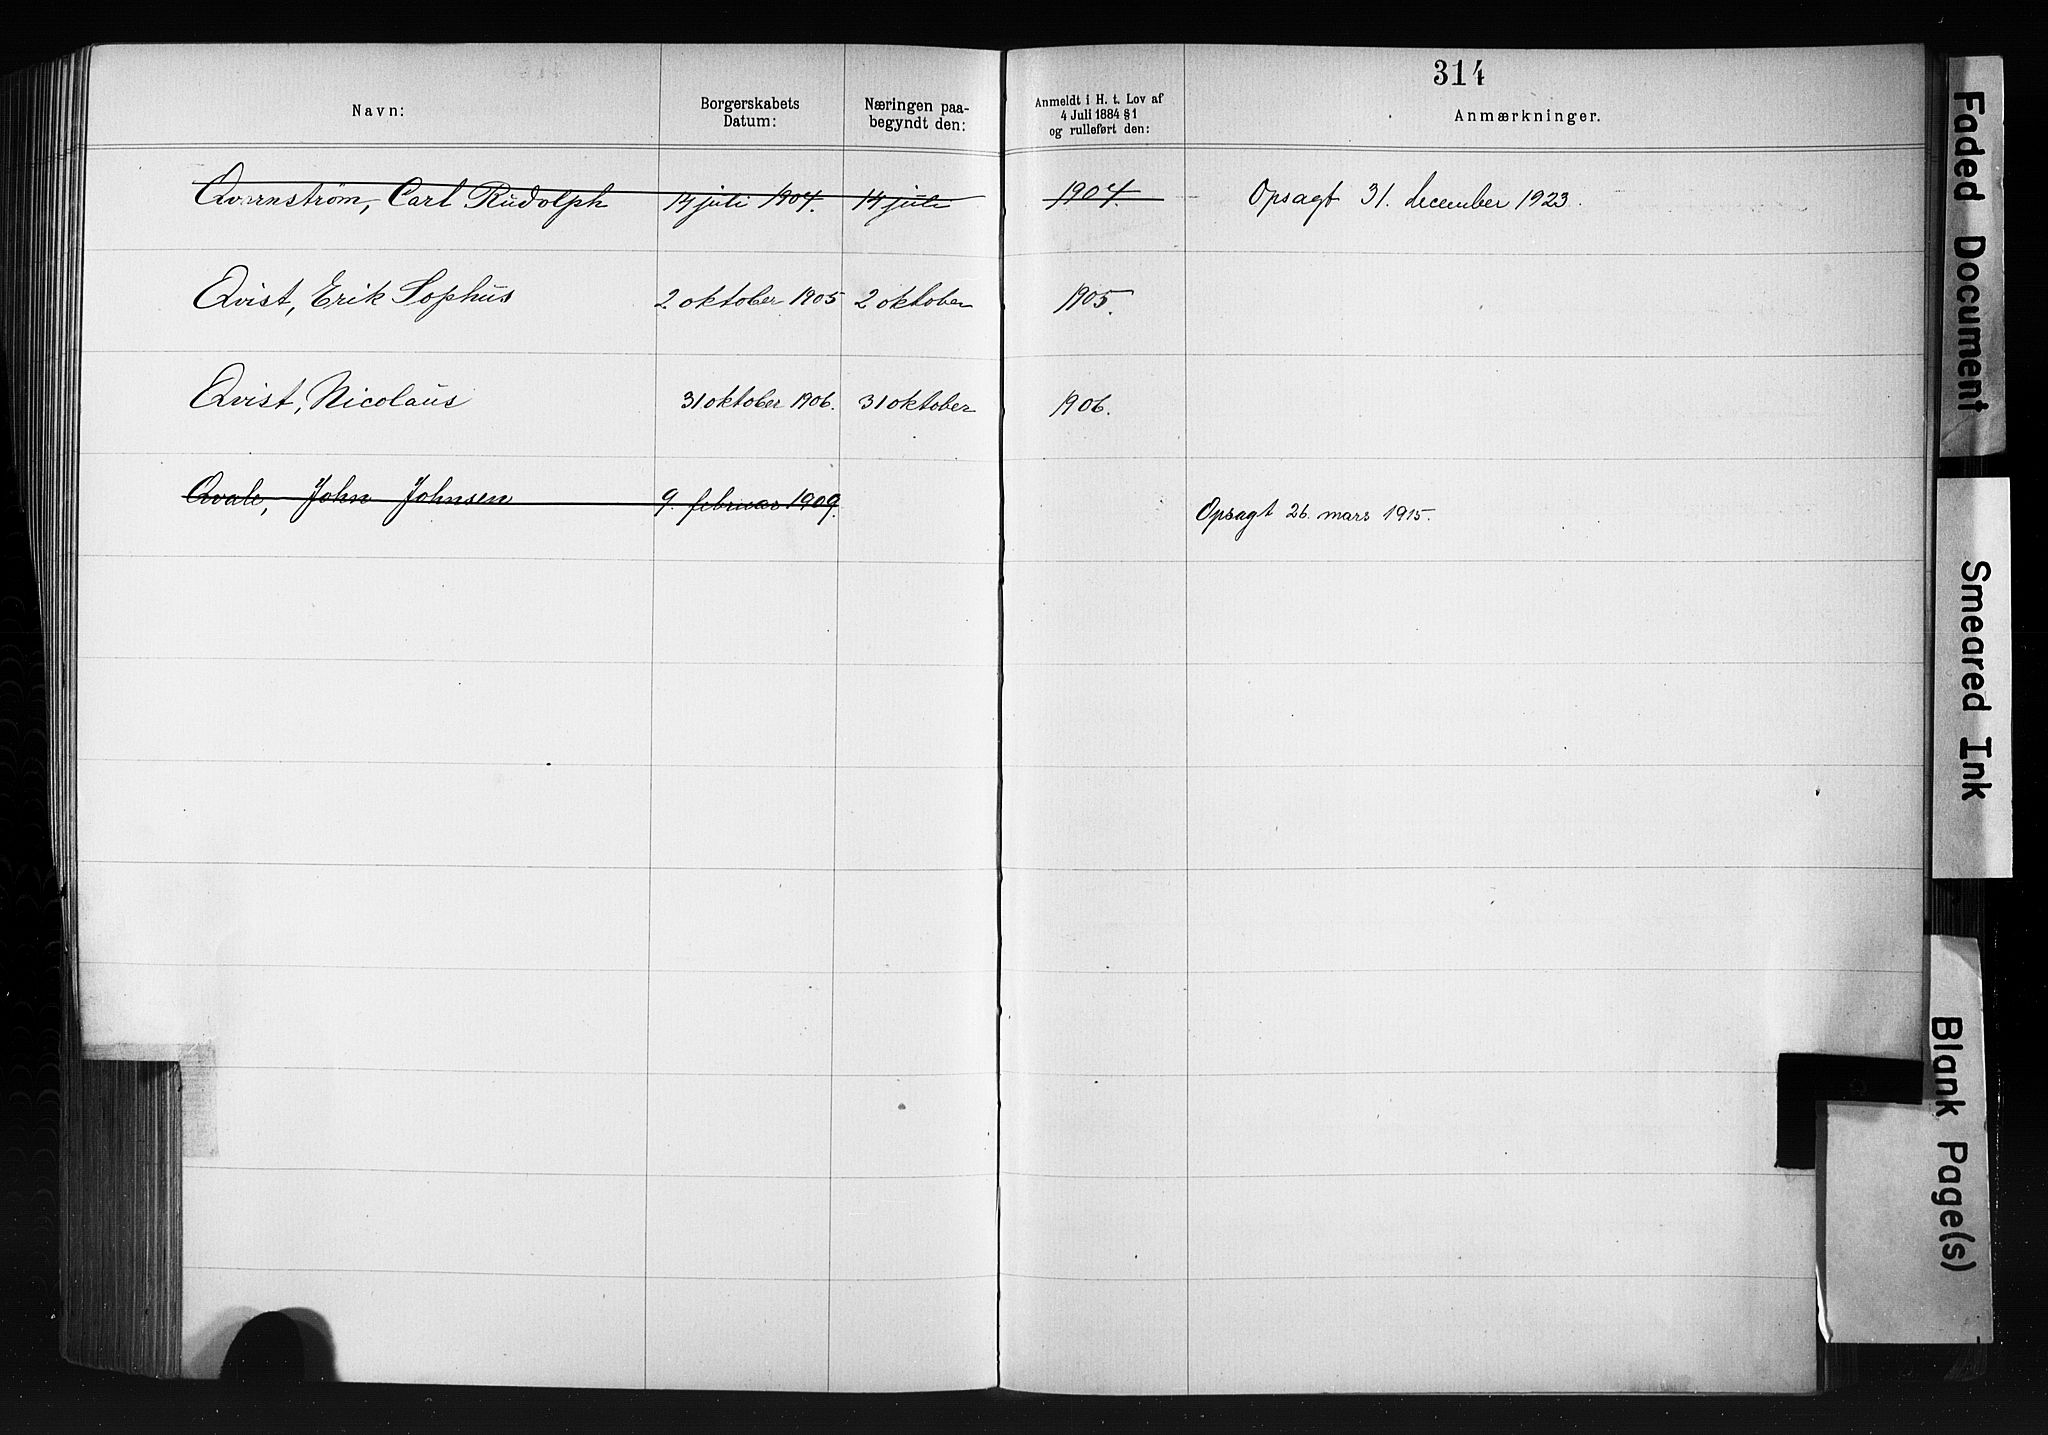 314
Navn:
Borgerskabets
Datum:
Næringen paa-
begyndt den:
Anmeldt i H. t. Lov af
4 Juli 1884 §1
og rulleført den:
Anmærkninger.
Qvarnstrøm, Carl Rudolph 14 juli 1904. 14 juli 1904. Opsagt 31. december 1923.
Qvist, Erik Sophus 2 oktober 1905 2 oktober 1905.
Qvist, Nicolaus 31 oktober 1906. 31 oktober 1906.
Qvale, John Johnsen 9. februar 1909. Opsagt 26. mars 1915.
Faded Document
Smeared Ink
Blank Page(s)